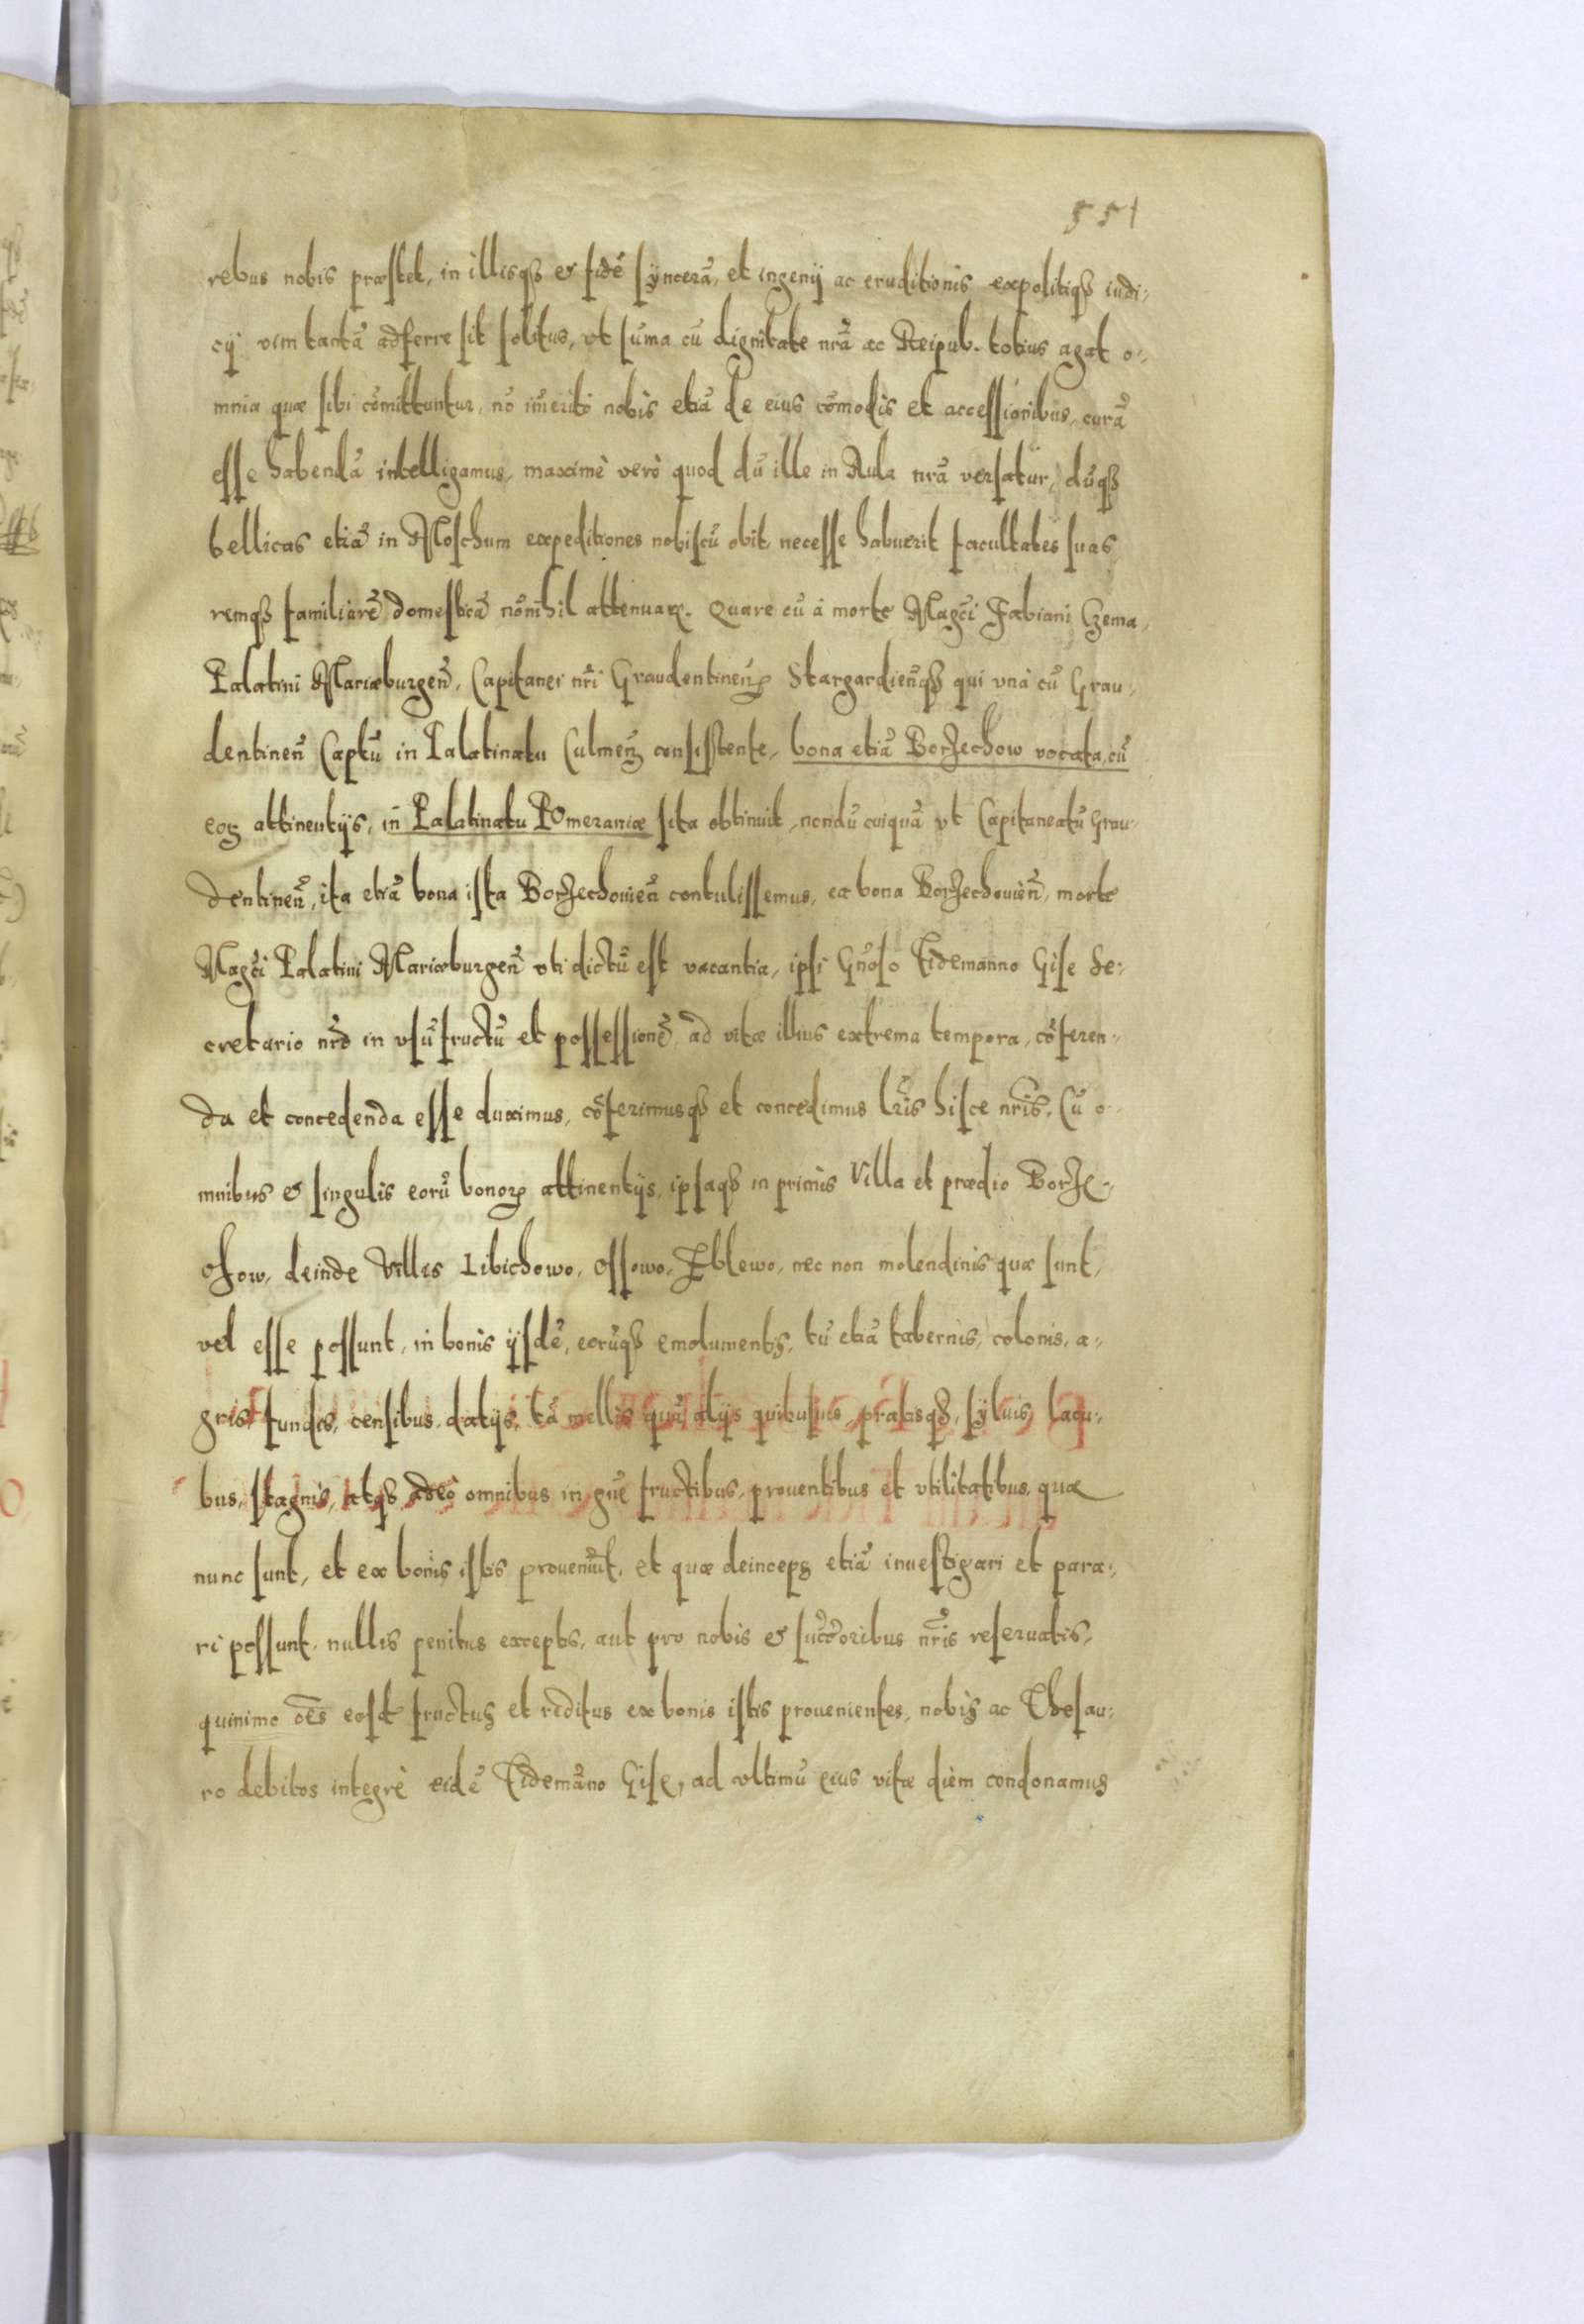 551
rebus nobis præstet, in illisqꝫ & fidẽ syncerã, et ingenij ac eruditionis expolitiqꝫ iudi-
cij vim tantã adferre sit solitus, vt sũma cũ dignitate nrã ac Reipub. totius agat o-
mnia quæ sibi cõmittuntur, nõ im̃eritò nobis etiã de eius cõmodis et accessionibus, curã
esse habendã intelligamus, maximè verò quod dũ ille in Aula nrã versatur, dũqꝫ
bellicas etiã in Moschum expeditiones nobiscũ obit, necesse habuerit facultates suas
remqꝫ familiarẽ domesticã nõnihil attenuare. Quare cũ à morte Magc̃i Fabiani Czema,
Palatini Mariæburgeñ, Capitanei nrĩ Graudentineñ Stargardieñqꝫ qui vnà cũ Grau-
dentineñ Captũ in Palatinatu Culmeñ consistente, bona etiã Borzechow vocata, cũ
eoꝝ attinentijs, in Palatinatu Pomeraniæ sita obtinuit, nondũ cuiquã vt Capitaneatũ Grau-
dentineñ, ita etiã bona ista Borzechovieñ contulissemus, ea bona Borzechovieñ, morte
Magc̃i Palatini Mariæburgeñ vti dictũ est vacantia, ipsi Gñoso Tidemanno Gise Se-
cretario nrõ in vsũfructũ et possessionẽ ad vitæ illius extrema tempora, cõferen-
da et concedenda esse duximus, cõferimusqꝫ et concedimus lrĩs hisce nrĩs, Cũ o-
mnibus & singulis eorũ bonoꝝ attinentijs, ipsaqꝫ in primis Villa et prædio Borze-
chow, deinde Villis Libichowo, Ossowo, Eblewo, nec non molendinis quæ sunt,
vel esse possunt, in bonis ijsdẽ, eorũqꝫ emolumentis, tũ etiã tabernis, colonis, a-
gris fundis, censibus, datijs, tã mellis quã alijs quibusuis, pratisqꝫ, syluis, lacu-
bus, stagnis, atqꝫ adeò omnibus in gñe fructibus, prouentibus et vtilitatibus, quæ
nunc sunt, et ex bonis istis proveniũt, et quæ deinceps etiã inuestigari et para-
ri possunt, nullis penitus exceptis, aut pro nobis & succr̃oribus nrĩs reseruatis,
quinimo oẽs eosd. fructus et reditus ex bonis istis prouenientes, nobis ac Thesau-
ro debitos integrè eidẽ Tidemãno Gise, ad vltimũ eius vitæ diem condonamus